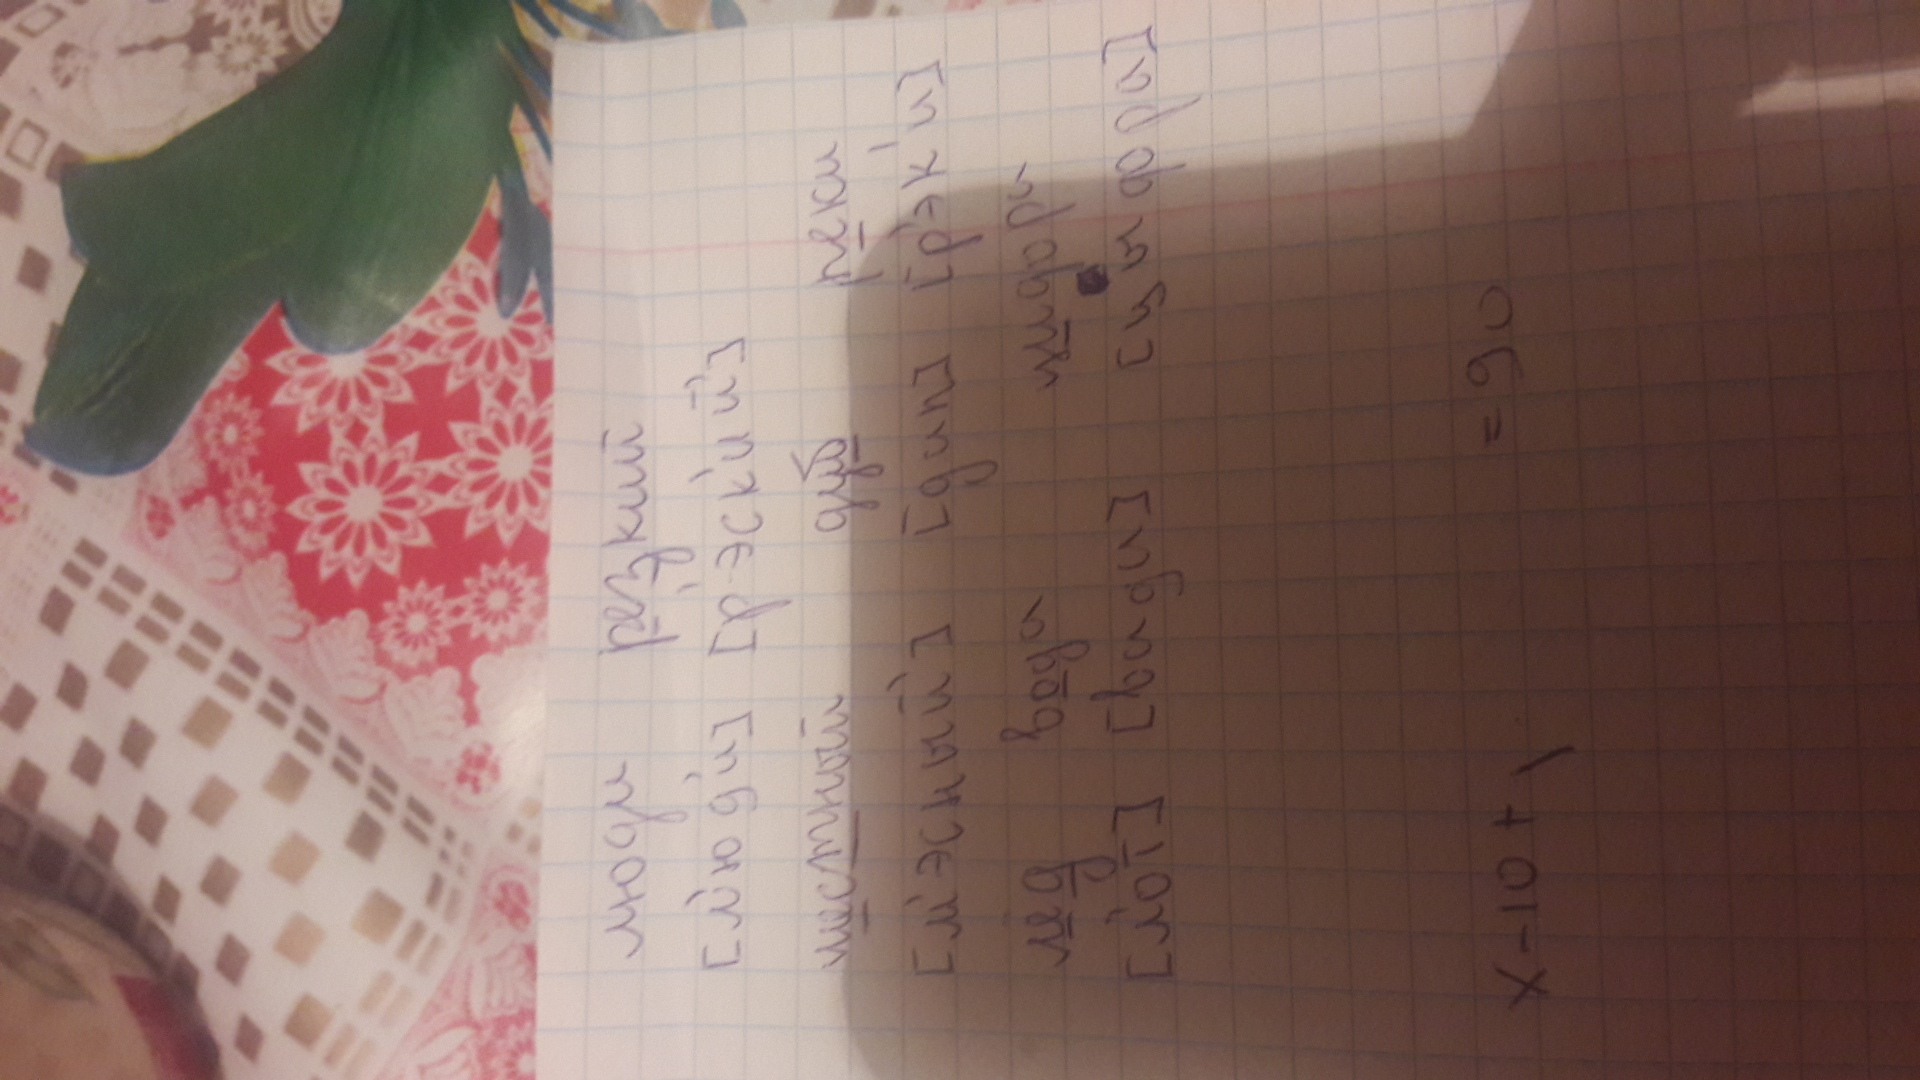 люди резкий
[л'юд'и] [р'эск'ий']
местный дуб реки
[м'эсный'] [дуп] [р'эк'и]
мёд вода цифра
[м'от] [вада] [цыфра]
x-10+ = 90